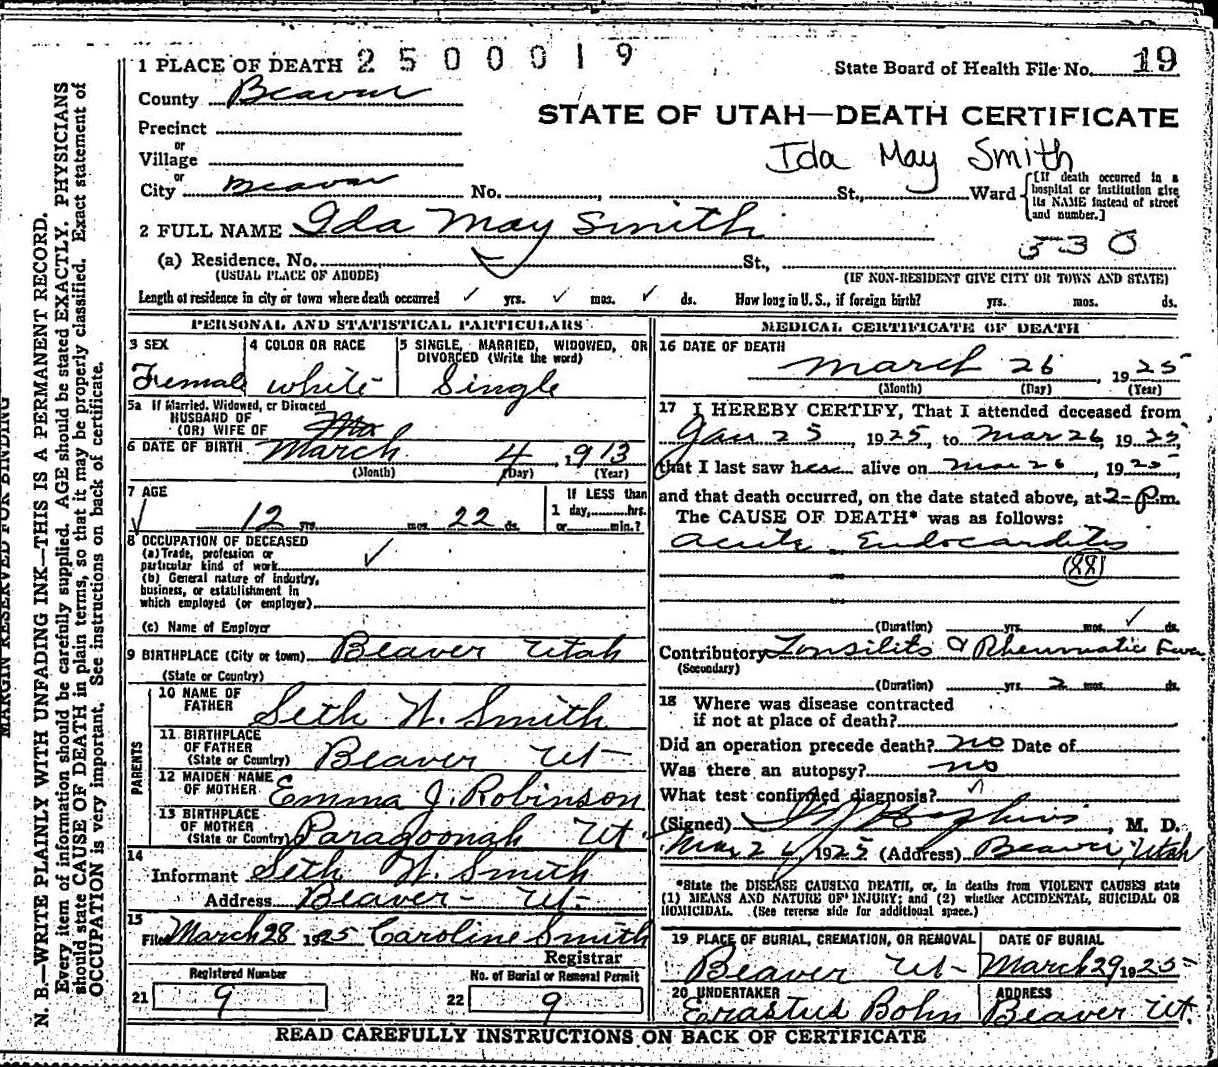 1 PLACE OF DEATH 2 5 0 0 0 1 9
State Board of Health File No. 19
County Beaver
STATE OF UTAH—DEATH CERTIFICATE
Precinct
or
Village
Ida May Smith
or
City Beaver No. , St., Ward
[If death occurred in a hospital or institution give its NAME instead of street and number.]
2 FULL NAME Ida May Smith
530
(a) Residence. No. St.,
(USUAL PLACE OF ABODE) (IF NON-RESIDENT GIVE CITY OR TOWN AND STATE)
Length of residence in city or town where death occurred ✓ yrs. ✓ mos. ✓ ds. How long in U. S., if foreign birth? yrs. mos. ds.
PERSONAL AND STATISTICAL PARTICULARS
3 SEX Female
4 COLOR OR RACE white
5 SINGLE, MARRIED, WIDOWED, OR DIVORCED (Write the word) Single
5a If Married, Widowed, or Divorced
HUSBAND OF
(OR) WIFE OF
6 DATE OF BIRTH March 4, 1913
(Month) (Day) (Year)
7 AGE 12 yrs. mos. 22 ds.
If LESS than
1 day, hrs.
or min.?
8 OCCUPATION OF DECEASED
(a) Trade, profession or
particular kind of work ✓
(b) General nature of industry,
business, or establishment in
which employed (or employer)
(c) Name of Employer
9 BIRTHPLACE (City or town) Beaver Utah
(State or Country)
PARENTS
10 NAME OF
FATHER Seth W. Smith
11 BIRTHPLACE
OF FATHER
(State or Country) Beaver Ut-
12 MAIDEN NAME
OF MOTHER Emma J. Robinson
13 BIRTHPLACE
OF MOTHER
(State or Country) Paragoonah Ut.
14
Informant Seth W. Smith
Address Beaver - Ut-
15
Filed March 28 1925 Caroline Smith
Registrar
Registered Number
21 9
No. of Burial or Removal Permit
22 9
MEDICAL CERTIFICATE OF DEATH
16 DATE OF DEATH
March 26, 1925
(Month) (Day) (Year)
17 I HEREBY CERTIFY, That I attended deceased from
Jan 25, 1925, to Mar 26, 1925,
that I last saw her alive on Mar 26, 1925
and that death occurred, on the date stated above, at 2- P.m.
The CAUSE OF DEATH* was as follows:
Acute Endocarditis
(88)
(Duration) yrs. mos. ✓ ds.
Contributory Tonsilits & Rheumatic Fever
(Secondary)
(Duration) yrs. 2 mos. ds.
18 Where was disease contracted
if not at place of death?
Did an operation precede death? no Date of
Was there an autopsy? no
What test confirmed diagnosis?
(Signed) , M. D.
Mar 26, 1925 (Address) Beaver, Utah
*State the DISEASE CAUSING DEATH, or, in deaths from VIOLENT CAUSES state
(1) MEANS AND NATURE OF INJURY; and (2) whether ACCIDENTAL, SUICIDAL OR
HOMICIDAL. (See reverse side for additional space.)
19 PLACE OF BURIAL, CREMATION, OR REMOVAL
Beaver Ut-
DATE OF BURIAL
March 29 1925
20 UNDERTAKER
Erastus Bohn
ADDRESS
Beaver Ut.
READ CAREFULLY INSTRUCTIONS ON BACK OF CERTIFICATE
MARGIN RESERVED FOR BINDING
N. B.—WRITE PLAINLY WITH UNFADING INK—THIS IS A PERMANENT RECORD.
Every item of information should be carefully supplied. AGE should be stated EXACTLY. PHYSICIANS
should state CAUSE OF DEATH in plain terms, so that it may be properly classified. Exact statement of
OCCUPATION is very important. See instructions on back of certificate.